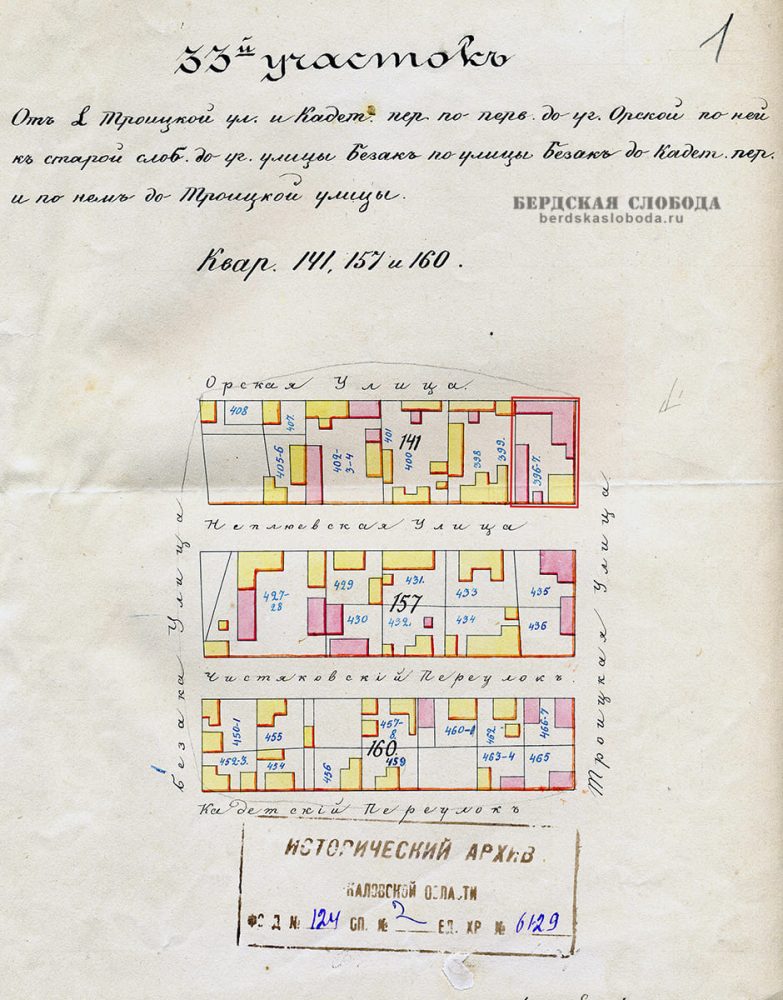 1
33й участокъ
Отъ Троицкой ул. и Кадет. пер. по перв. до уг. Орской по ней
къ старой слоб. до уг. улицы Безакъ по улицы Безакъ до Кадет. пер.
и по немъ до Троицкой улицы.
БЕРДСКАЯ СЛОБОДА
berdskasloboda.ru
Квар. 141, 157 и 160.
Орская Улица.
408
407.
405-6
402-3-4
401
141
400
398
399.
396-7.
Неплюевская Улица
427-28
429
430
431.
157
432.
433
434
435
436
Чистяковскій Переулокъ.
450-1
455
452-3.
454
456
457-8.
160.
459
460-1
462
466-7
463-4
465
Кадетскій Переулокъ
Безака Улица
Троицкая Улица
ИСТОРИЧЕСКИЙ АРХИВ
КАЛОВСКОЙ ОБЛАСТИ
ФОНД № 124 ОП. № 2 ЕД. ХР № 6129